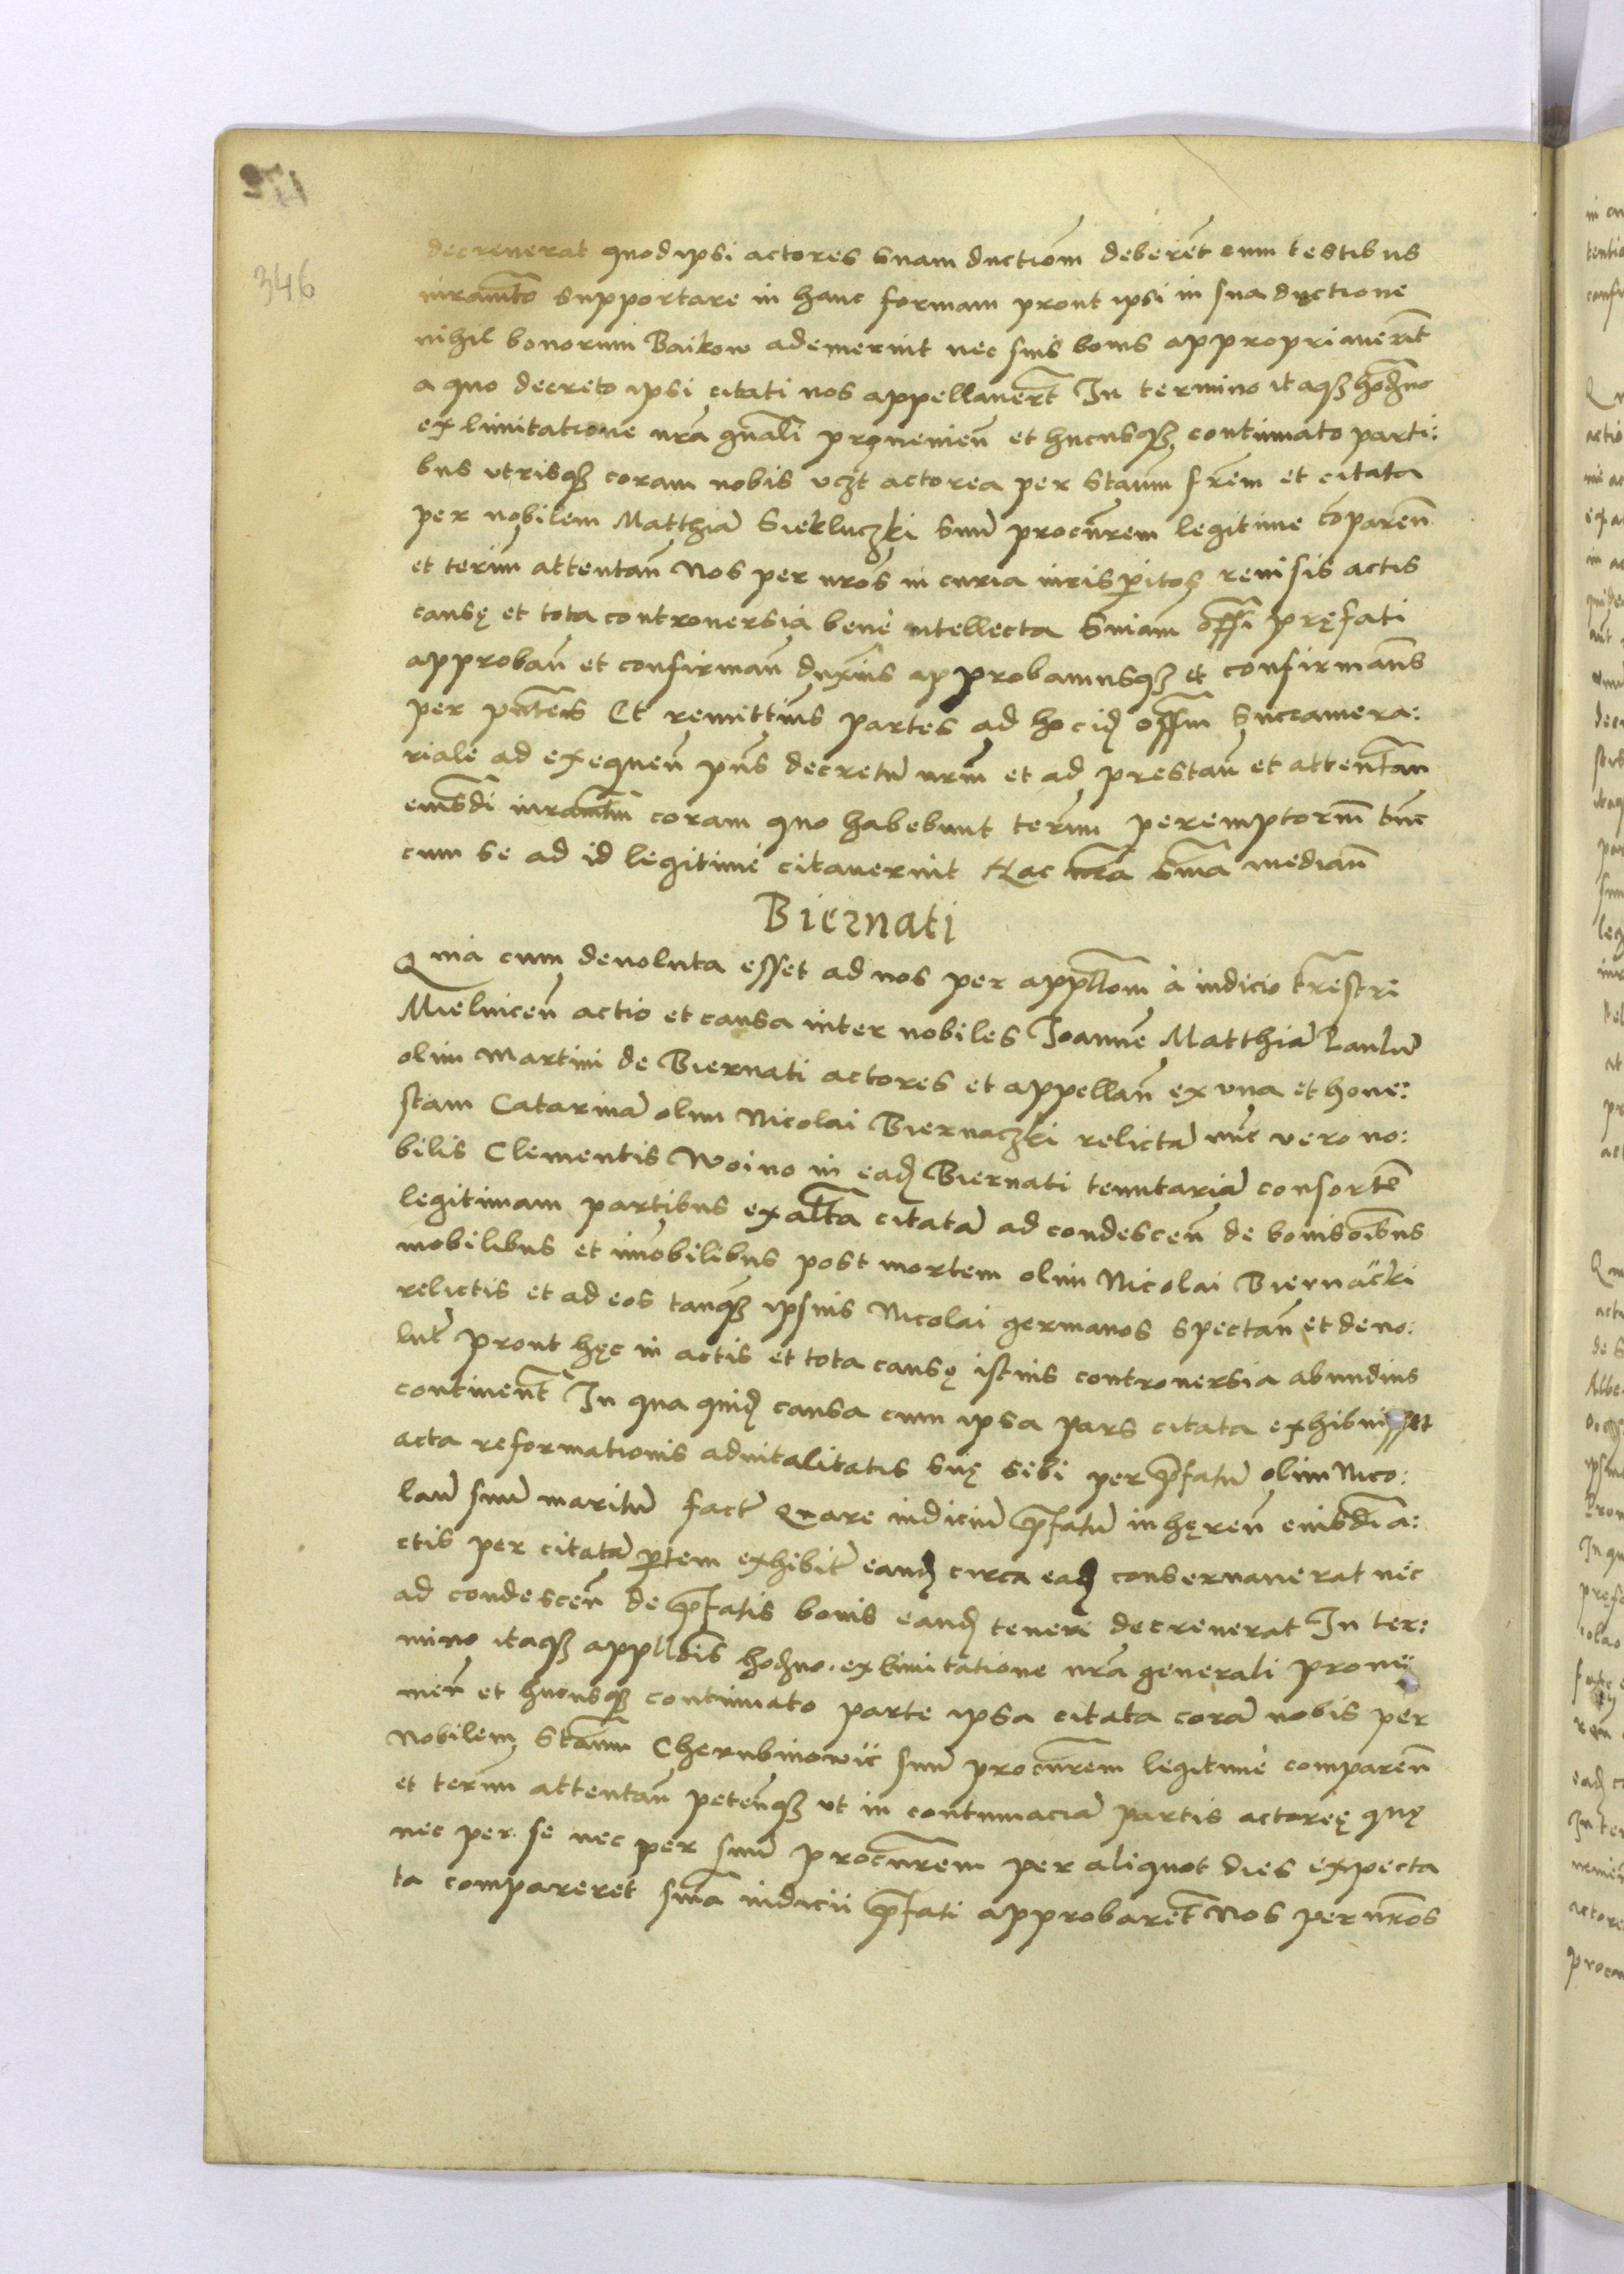 346
decreuerat quod ipsi actores suam ductiom̄ deberēt cum testibus
iuramt̄o supportare in hanc formam prout ipsi in sua ductione
nihil bonorum Baikow ademerint nec suis bonis appropriauerīt
a quo decreto ipsi citati nos appellauerūt In termino itaqꝫ hodierno
ex limitatione nrā gnāli proueniēn et hucusqꝫ continuato parti:
bus vtrisqꝫ coram nobis vczt actorea per Staūm frēm et citata
per nobilem Matthiā Siekluczki suū procūrem legitime cōparēn
et term̄ attentān Nos per nrōs in curia iurisperitos reuisis actis
causę et tota controuersia bene intellecta Sniam̄ offī pręfati
approbān et confirmān duxim̄s approbamusqꝫ et confirmam̄s
per pn̄tes Et remittim̄s partes ad hoc id offm̄ Succamera:
riale ad exequēn pn̄s decretū nrm̄ et ad prestān et attentān
eiusdī iuramt̄m coram quo habebunt term̄ peremptoriū tūc
cum se ad id legitime citauerint Hac nrā snīa mediān
Biernati
Quia cum deuoluta esset ad nos per appllōm a iudicio trrēstri
Mielnicēn actio et causa inter nobiles Joannē Matthiā Paulū
olim Martini de Biernati actores et appellān ex vna et hone:
stam Catarinā olim Nicolai Biernaczki relictā nūc vero no:
bilis Clementis Woino in eadꝫ Biernati tenutariā consortē
legitimam partibus ex altā citatā ad condescēn de bonis oībus
mobilibus et im̄obilibus post mortem olim Nicolai Biernacki
relictis et ad eos tanqꝫ ipsius Nicolai germanos spectān et deuo:
lut̄ prout hęc in actis et tota causę istius controuersia abundius
continent̄ In qua quidꝫ causa cum ipsa pars citata exhibuisset
acta reformationis aduitalitatis suę sibi per p̄fatū olim Nico:
laū suū maritū fact̄ Quare iudiciū p̄fatū inhęrēn eiusdī a:
ctis per citatā p̄tem exhibit̄ eandꝫ circa eadꝫ conseruauerat nec
ad condescēn de p̄fatis bonis eandꝫ teneri decreuerat In ter:
mino itaqꝫ appllōis hodierno ex limitatione nrā generali proue
niēn et hucusqꝫ continuato parte ipsa citata corā nobis per
Nobilem Stām̄ Cherubinowic suū procūrem legitime comparēn
et term̄ attentān petēnqꝫ vt in contumaciā partis actoreę quę
nec per se nec per suū procūrem per aliquot dies expecta
ta compareret snīa iudicii p̄fati approbaret̄ Nos per nrōs